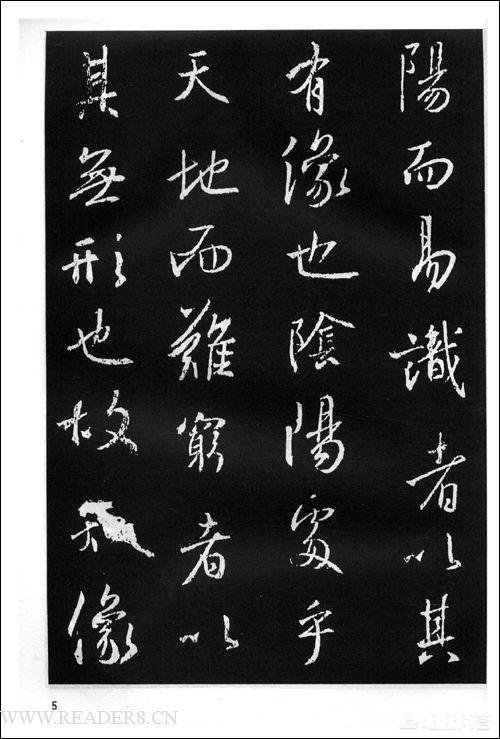 陽而易識者以其
有像也陰陽處乎
天地而難窮者以
其無形也故像
5
WWW.READER8.CN